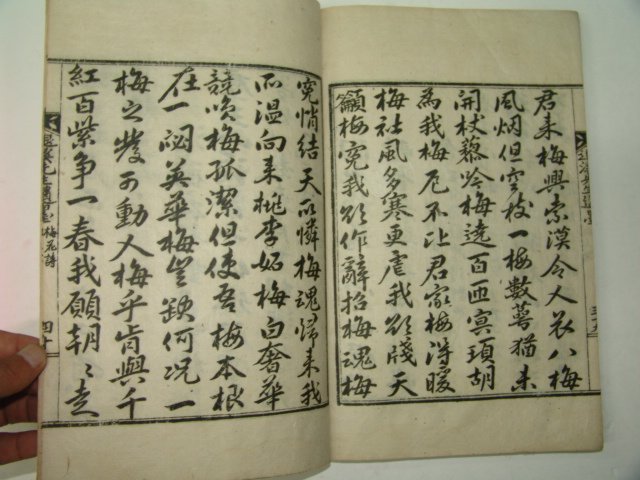 君來梅興索漠令人哀八梅
風烟但空枝一梅數萼猶未
開杖藜吟梅遶百匝冥頊胡
為我梅厄不比君家梅得暖
梅社風多寒更虐我欲牋天
籲梅冤我欲作辭招梅魂梅
冤悄結天所憐梅魂歸來我
所温向來桃李妬梅白奢華
競笑梅孤潔但使吾梅本根
在一閟英華梅豈缺何況一
梅之發可動人梅乎肯與千
紅百紫爭一春我願朝〻走
梅花詩
四十